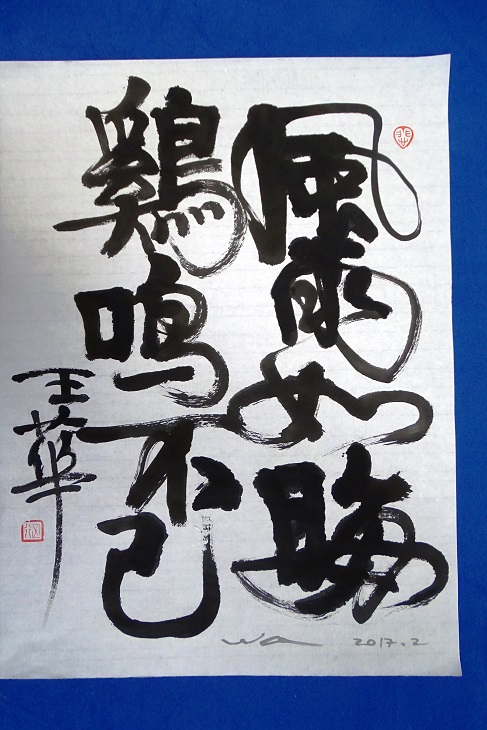 風雨如晦
鷄鳴不已
王華
2017.2